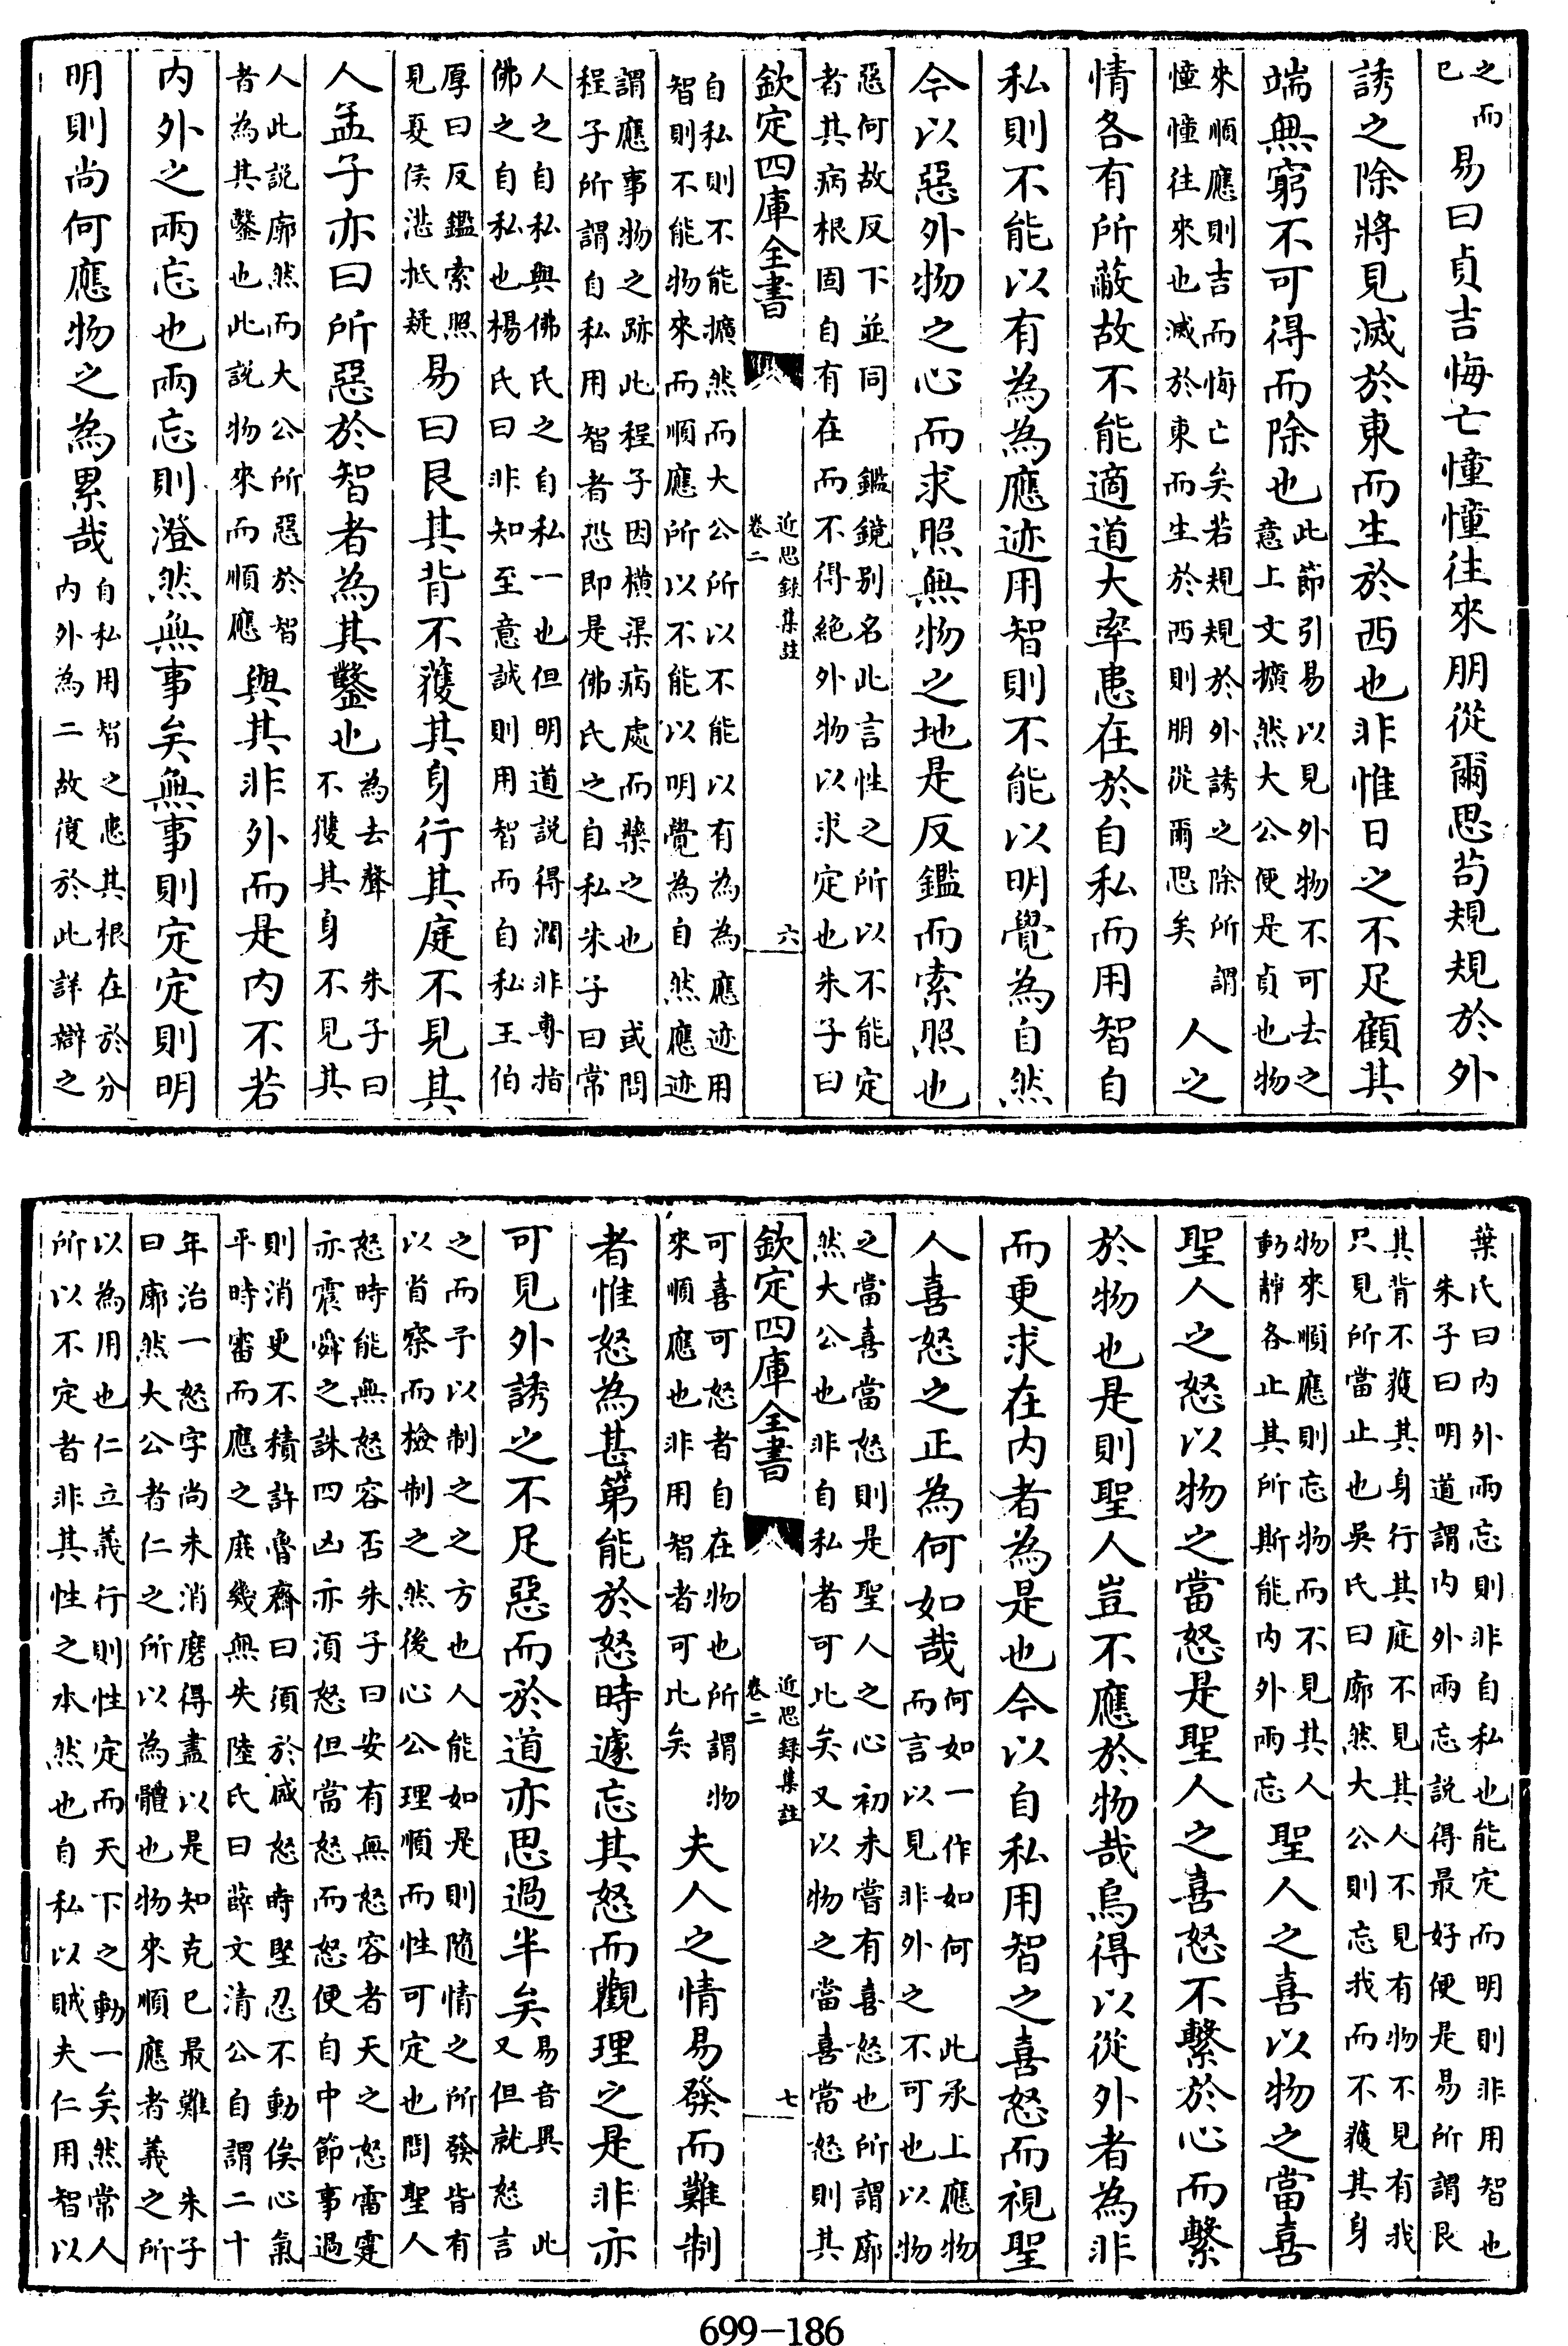 之而已　易曰貞吉悔亡憧憧往來朋從爾思苟規規於外
誘之除將見滅於東而生於西也非惟日之不足顧其
端無窮不可得而除也此節引易以見外物不可去之意上文擴然大公便是貞也物
來順應則吉而悔亡矣若規規於外誘之除所謂憧憧往來也滅於東而生於西則朋從爾思矣　人之
情各有所蔽故不能適道大率患在於自私而用智自
私則不能以有為為應迹用智則不能以明覺為自然
今以惡外物之心而求照無物之地是反鑑而索照也
惡何故反下並同　鑑鏡別名此言性之所以不能定者其病根固自有在而不得絶外物以求定也朱子曰
欽定四庫全書　近思録集註卷二　六
自私則不能擴然而大公所以不能以有為為應迹用智則不能物來而順應所以不能以明覺為自然應迹
謂應事物之跡此程子因橫渠病處而藥之也　或問程子所謂自私用智者恐即是佛氏之自私朱子曰常
人之自私與佛氏之自私一也但明道説得濶非專指佛之自私也楊氏曰非知至意誠則用智而自私王伯
厚曰反鑑索照見夏侯湛抵疑　易曰艮其背不獲其身行其庭不見其
人孟子亦曰所惡於智者為其鑿也為去聲　朱子曰不獲其身不見其
人此説廓然而大公所惡於智者為其鑿也此説物來而順應　與其非外而是内不若
内外之兩忘也兩忘則澄然無事矣無事則定定則明
明則尚何應物之為累哉自私用智之患其根在於分内外為二故復於此詳辯之
葉氏曰内外兩忘則非自私也能定而明則非用智也朱子曰明道謂内外兩忘説得最好便是易所謂艮
其背不獲其身行其庭不見其人不見有物不見有我只見所當止也吳氏曰廓然大公則忘我而不獲其身
物來順應則忘物而不見其人動靜各止其所斯能内外兩忘　聖人之喜以物之當喜
聖人之怒以物之當怒是聖人之喜怒不繫於心而繫
於物也是則聖人豈不應於物哉烏得以從外者為非
而更求在内者為是也今以自私用智之喜怒而視聖
人喜怒之正為何如哉何如一作如何　此承上應物而言以見非外之不可也以物
之當喜當怒則是聖人之心初未嘗有喜怒也所謂廓然大公也非自私者可比矣又以物之當喜當怒則其
欽定四庫全書　近思録集註卷二　七
可喜可怒者自在物也所謂物來順應也非用智者可比矣　夫人之情易發而難制
者惟怒為甚第能於怒時遽忘其怒而觀理之是非亦
可見外誘之不足惡而於道亦思過半矣易音異　此又但就怒言
之而予以制之之方也人能如是則隨情之所發皆有以省察而檢制之然後心公理順而性可定也問聖人
怒時能無怒容否朱子曰安有無怒容者天之怒雷霆亦震舜之誅四凶亦須怒但當怒而怒便自中節事過
則消更不積許魯齋曰須於盛怒時堅忍不動俟心氣平時審而應之庶幾無失陸氏曰薛文清公自謂二十
年治一怒字尚未消磨得盡以是知克已最難　朱子曰廓然大公者仁之所以為體也物來順應者義之所
以為用也仁立義行則性定而天下之動一矣然常人所以不定者非其性之本然也自私以賊夫仁用智以
699-186